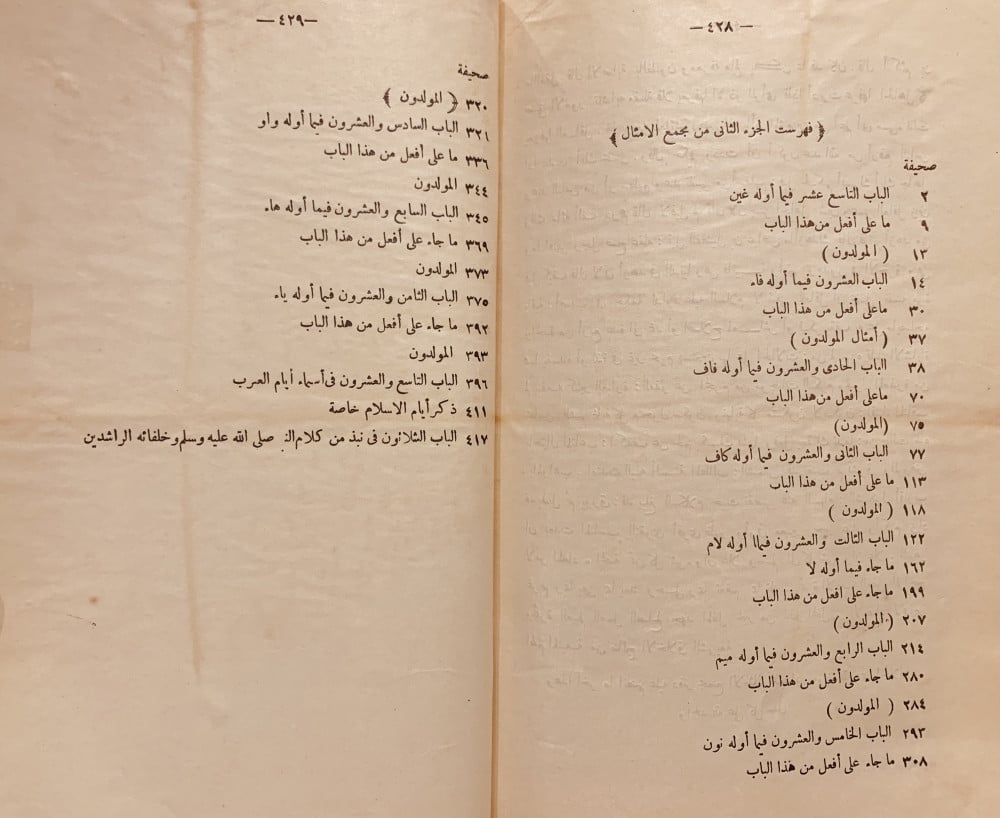 —٤٢٨—
﴿ فهرست الجزء الثانى من مجمع الامثال ﴾
صحيفة
٢ الباب التاسع عشر فيما أوله غين
٩ ما على أفعل من هذا الباب
١٣ ( المولدون )
١٤ الباب العشرون فيما أوله فاء
٣٠ ماعلى أفعل من هذا الباب
٣٧ ( أمثال المولدون )
٣٨ الباب الحادى والعشرون فيما أوله قاف
٧٠ ماعلى أفعل من هذا الباب
٧٥ (المولدون)
٧٧ الباب الثانى والعشرون فيما أوله كاف
١١٣ ما على أفعل من هذا الباب
١١٨ ( المولدون )
١٢٢ الباب الثالث والعشرون فيماا أوله لام
١٦٢ ما جاء فيما أوله لا
١٩٩ ما جاء على افعل من هذا الباب
٢٠٧ (المولدون)
٢١٤ الباب الرابع والعشرون فيما أوله ميم
٢٨٠ ما جاء على أفعل من هذا الباب
٢٨٤ ( المولدون )
٢٩٣ الباب الخامس والعشرون فيما أوله نون
٣٠٨ ما جاء على أفعل من هذا الباب
—٤٢٩—
صحيفة
٣٢٠ ﴿ المولدون ﴾
٣٢١ الباب السادس والعشرون فيما أوله واو
٣٣٦ ما على أفعل من هذا الباب
٣٤٤ المولدون
٣٤٥ الباب السابع والعشرون فيما أوله هاء
٣٦٩ ما جاء على أفعل من هذا الباب
٣٧٣ المولدون
٣٧٥ الباب الثامن والعشرون فيما أوله ياء
٣٩٢ ما جاء على أفعل من هذا الباب
٣٩٣ المولدون
٣٩٦ الباب التاسع والعشرون فى أسماء أيام العرب
٤١١ ذكر أيام الاسلام خاصة
٤١٧ الباب الثلاثون فى نبذ من كلام الن صلى الله عليه وسلم وخلفائه الراشدين